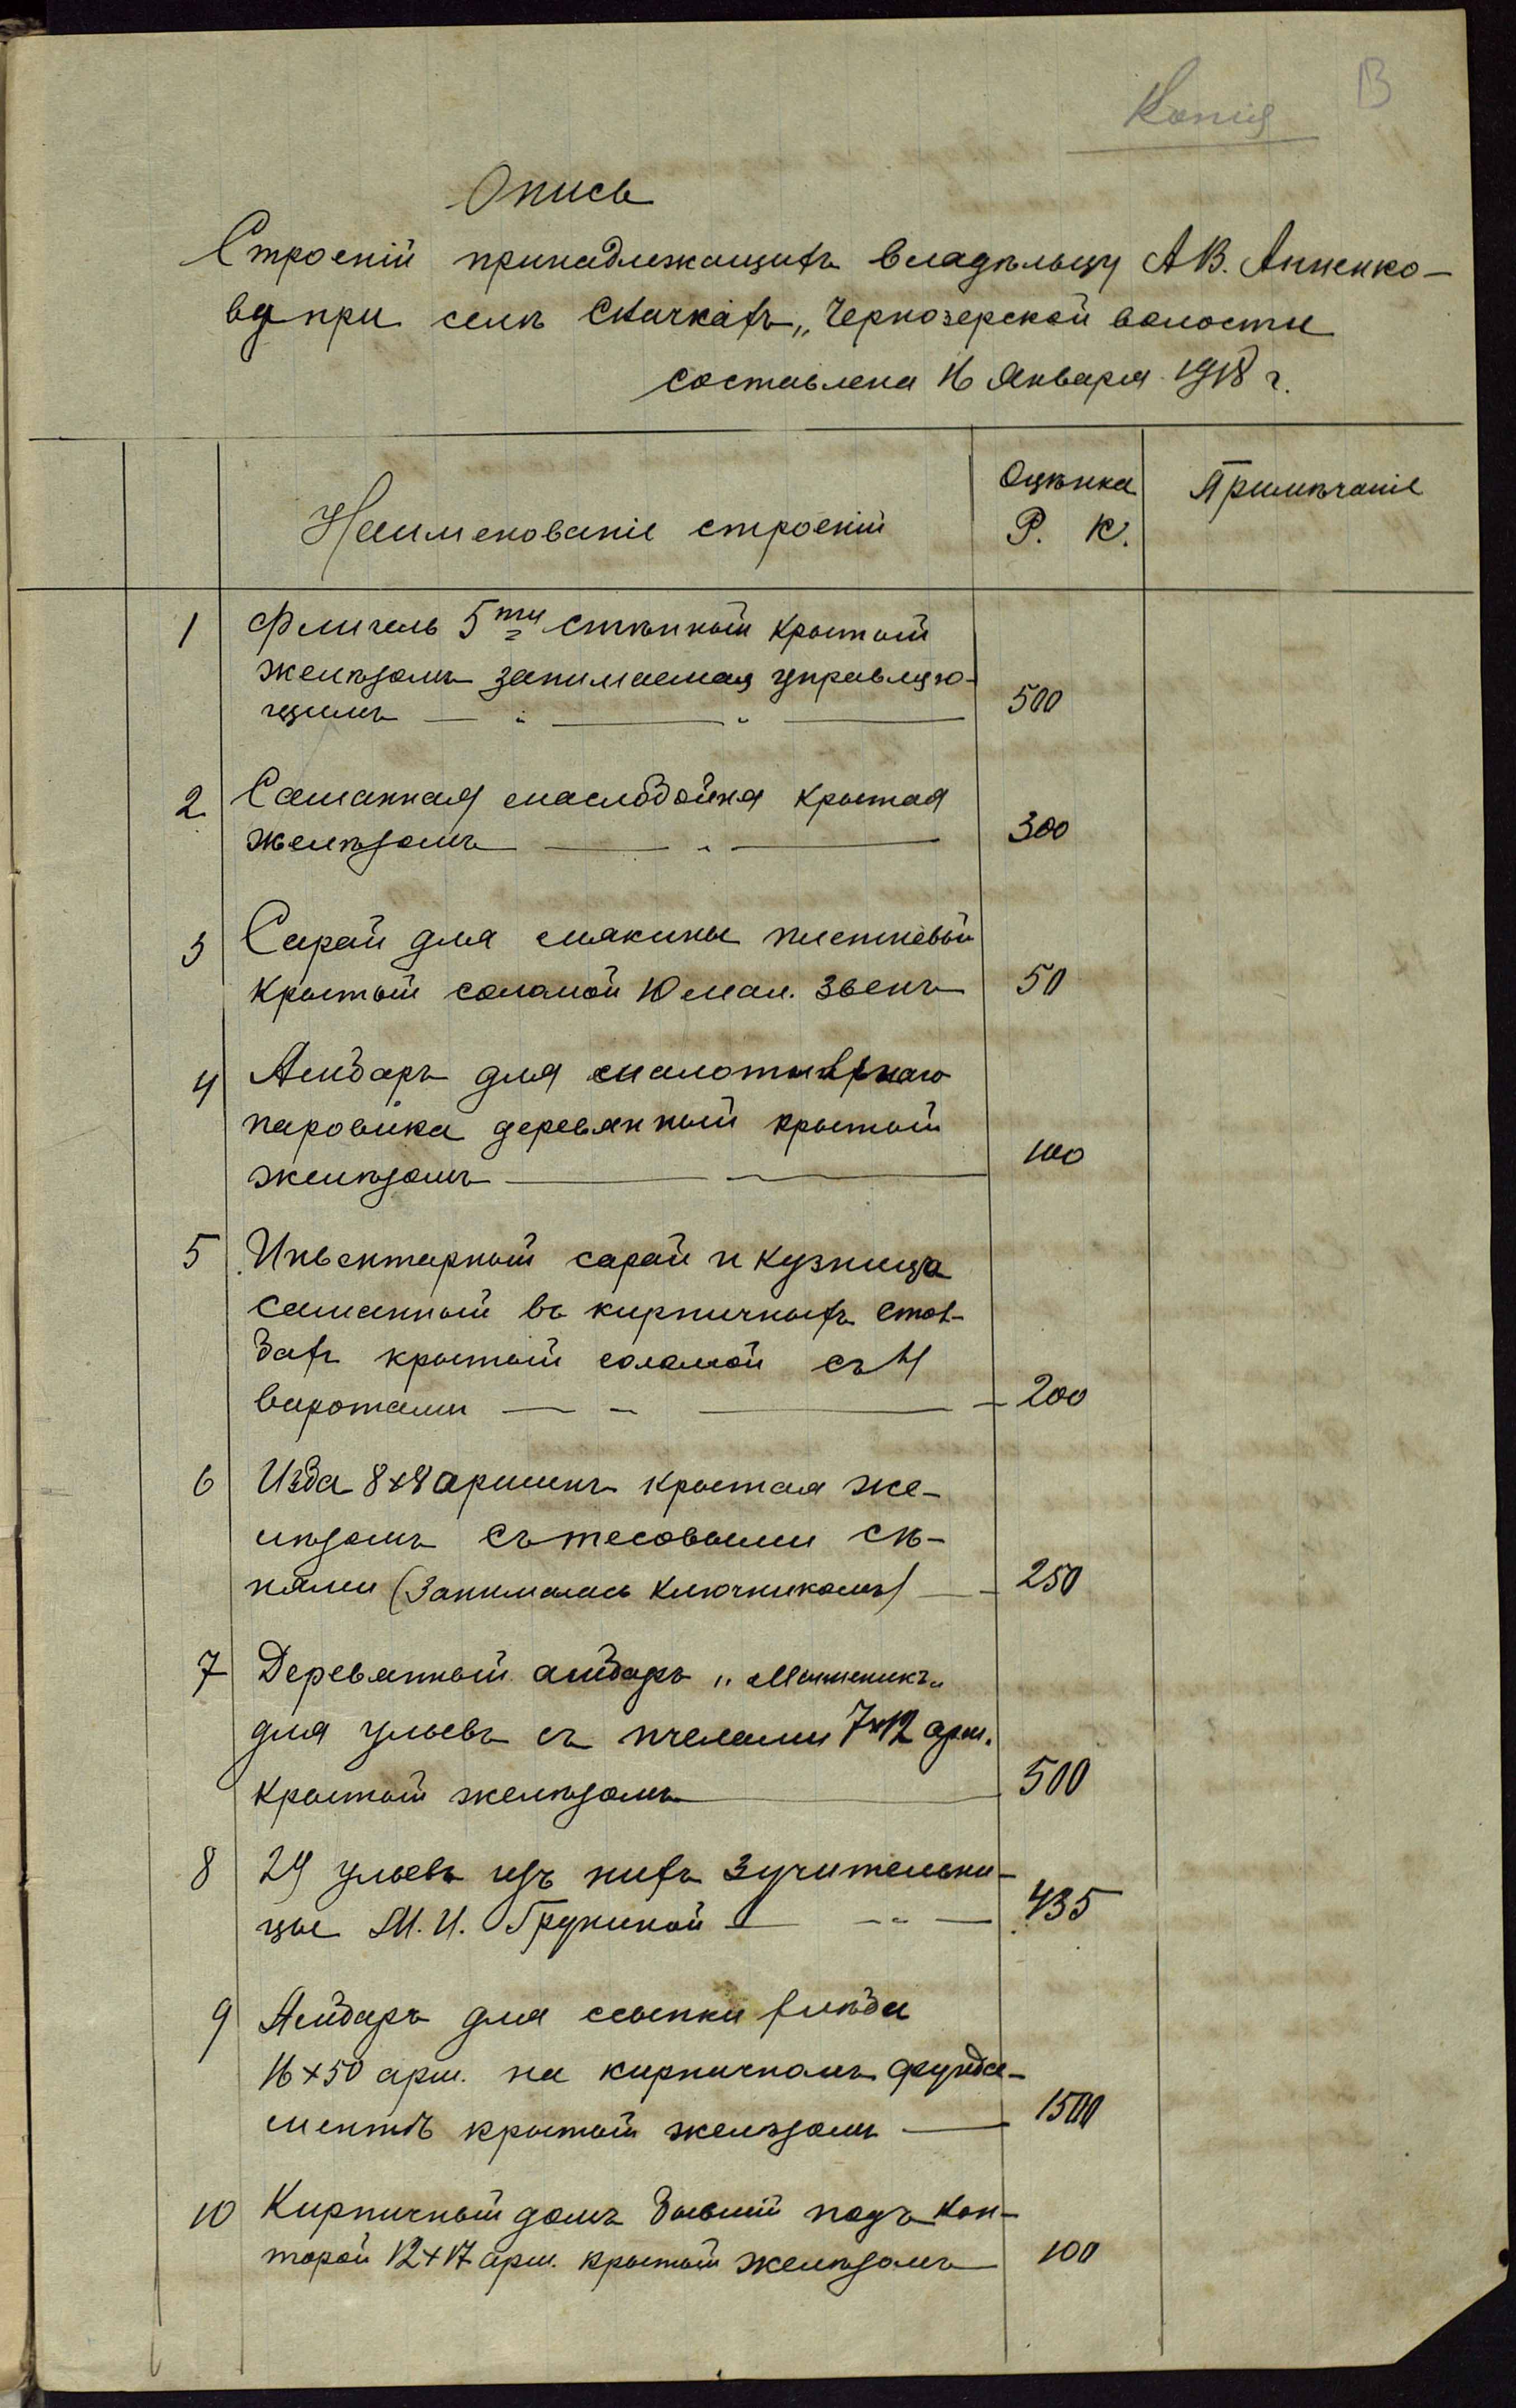 Копія
В
Опись
Строеній принадлежащихъ владѣльцу А В. Анненко-
ву при селѣ Скачкахъ, Чернозерской волости
составлена 16 Января 1918 г.
Наименованіе строеній
Оцѣнка
Р. К.
Примѣчаніе
1 Флигель 5ти стѣнный крытый
желѣзомъ занимаемая управляю-
щимъ — " — " — 500
2 Саманная маслобойня крытая
желѣзомъ — " — 300
3 Сарай для мякины плетневый
крытый соломой 10 мал. звенъ 50
4 Амбаръ для
паровика деревянный крытый
желѣзомъ — 100
5 Инвентарный сарай и кузница
саманный въ кирпичныхъ стол-
бахъ крытый соломой съ 4
воротами — - — 200
6 Изба 8х8 аршинъ крытая же-
лѣзомъ съ тесовыми сѣ-
нями (Занималась ключникомъ) — 250
7 Деревянный амбаръ „Мшенникъ„
для ульевъ съ пчелами 7х12 арш.
крытый желѣзомъ — 500
8 29 ульевъ изъ нихъ 3 учительни-
цы М. И. Груниной — 435
9 Амбаръ для ссыпки хлѣба
16х50 арш. на кирпичномъ фунда-
ментѣ крытый желѣзомъ — 1500
10 Кирпичный домъ бывшій подъ кон-
торой 12х17 арш. крытый желѣзомъ 100